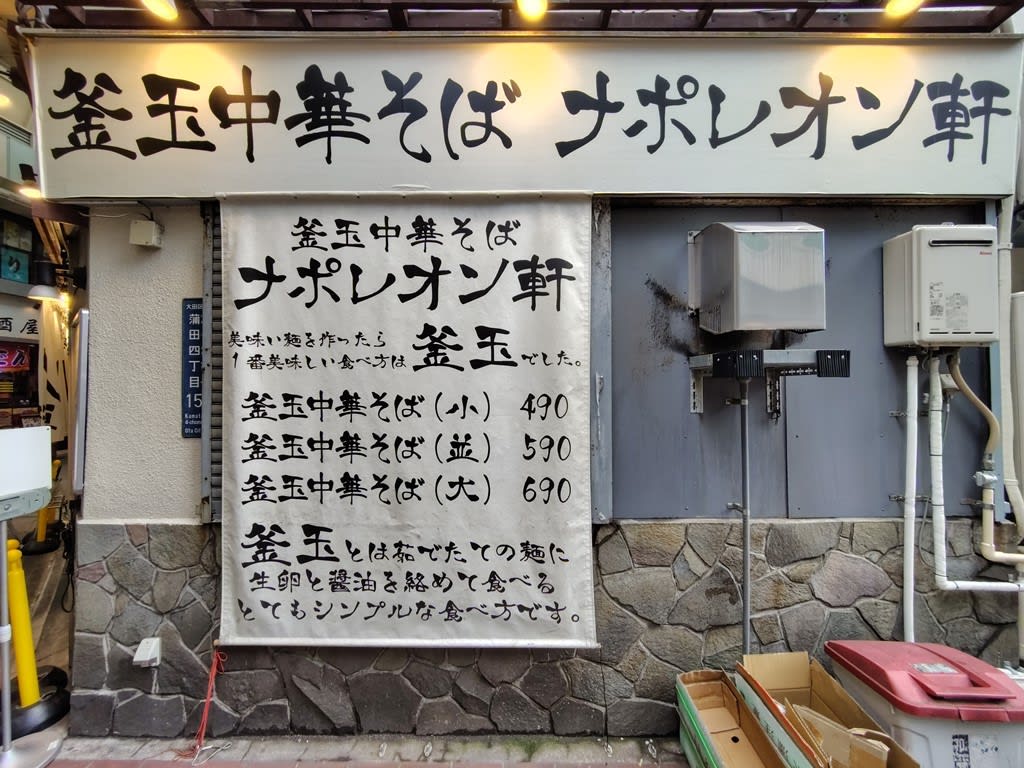 釜玉中華そば ナポレオン軒
釜玉中華そば
ナポレオン軒
美味い麺を作ったら
1番美味しい食べ方は 釜玉でした。
釜玉中華そば(小) 490
釜玉中華そば(並) 590
釜玉中華そば(大) 690
釜玉とは茹でたての麺に
生卵と醤油を絡めて食べる
とてもシンプルな食べ方です。
大田区
蒲田四丁目
15
Kamata
4-chome
Ota City
酒屋
り